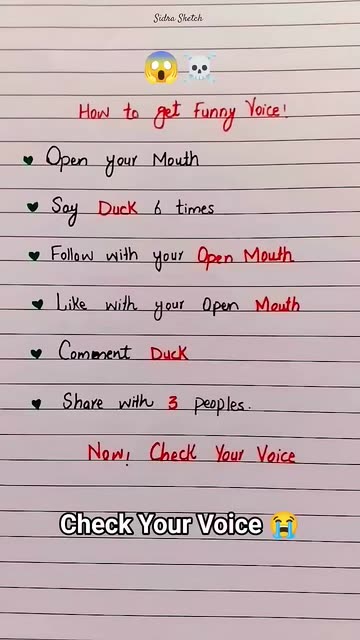 Sidra Sketch
😱☠️
How to get Funny Voice!
♥ Open your Mouth
♥ Say Duck 6 times
♥ Follow with your Open Mouth
♥ Like with your Open Mouth
♥ Comment Duck
♥ Share with 3 peoples.
Now! Check Your Voice
Check Your Voice 😭